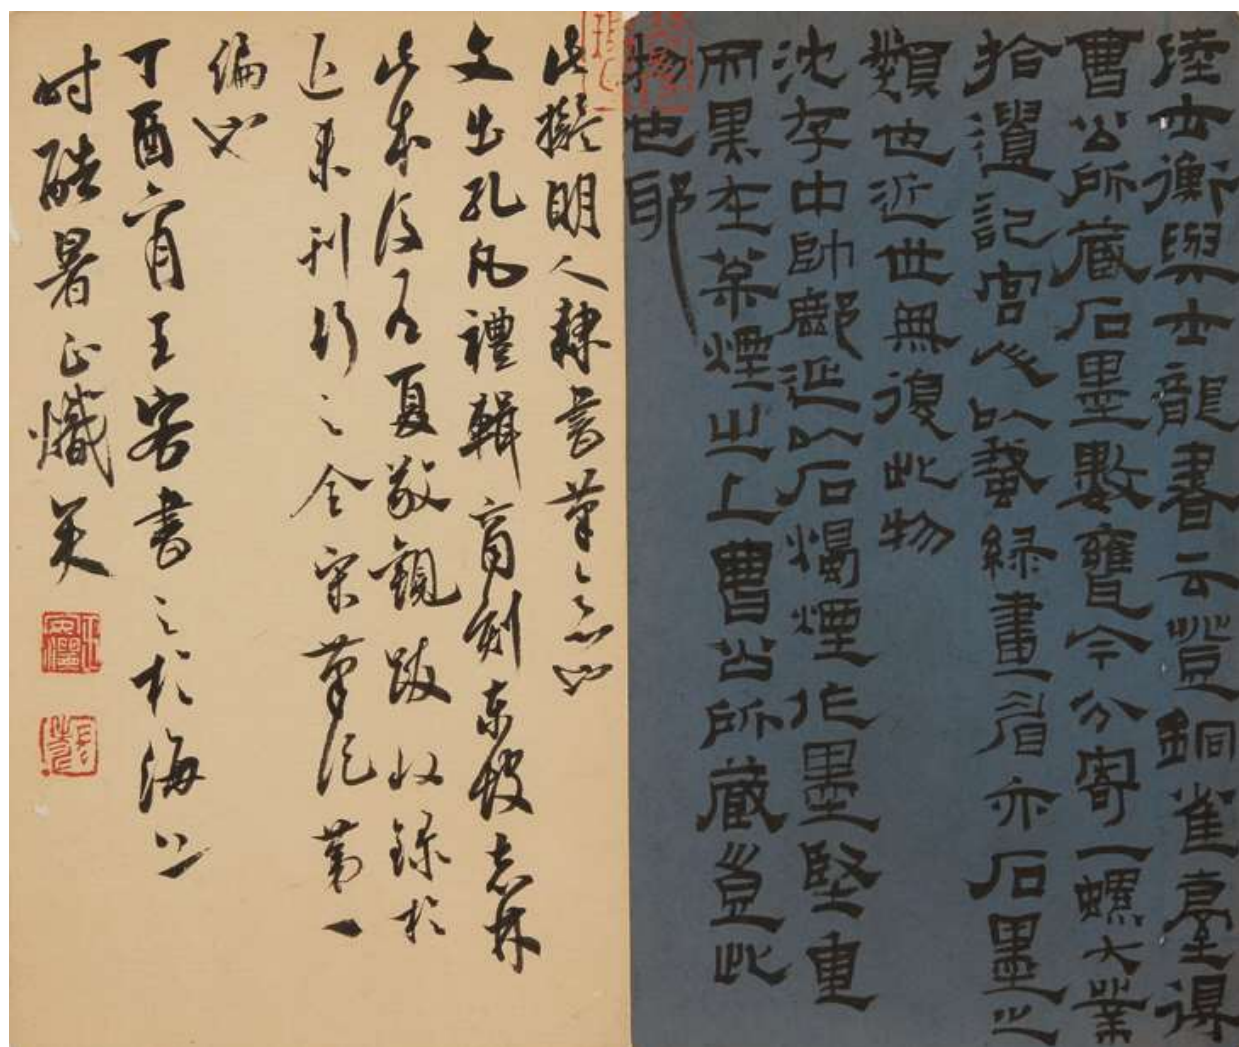 陸士衡與士龍書云登銅雀臺得
曹公所藏石墨數甕今分寄一螺大業
拾遺記宮人以蛾綠畫眉亦石墨之
類也近世無復此物
沈存中帥鄜延以石燭煙作墨堅重
而黑在松煙之上曹公所藏豈此
物也耶
此擬明人隸書筆意也
文出孔凡禮輯商刻東坡志林
此本後有夏敬觀跋收錄於
近來刊行之全宋筆記第一
編也
丁酉六月王客書之於海上
時酷暑正熾矣